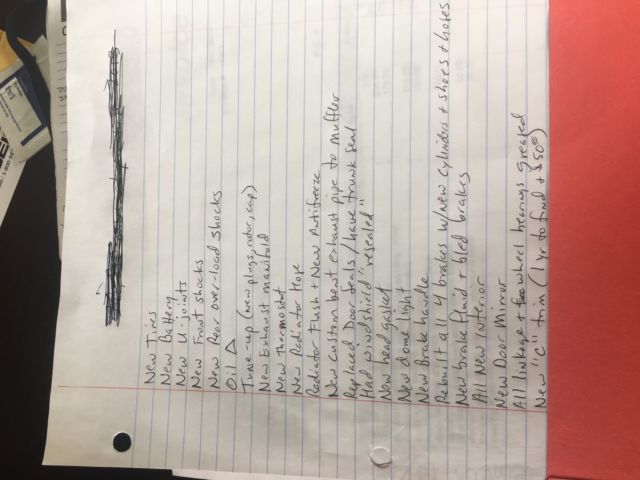 New Tires
New Battery
New U-joints
New Front shocks
New Rear over-load shocks
Oil Δ
Tune-up (new plugs, rotor, cap)
New Exhaust manifold
New Thermostat
New Radiator Hose
Radiator Flush + New Antifreeze
New custom bent exhaust pipe to muffler
Replaced Door seals / have trunk seal
Had windshield "resealed"
New head gasket
New dome light
New Brake handle
Rebuilt all 4 brakes w/new cylinders + shoes + hoses
New brake fluid + bled brakes
All New Interior
New Door Mirror
All linkage + wheel bearings greased
New "C" trim (1 yr to find + $50⁰⁰)